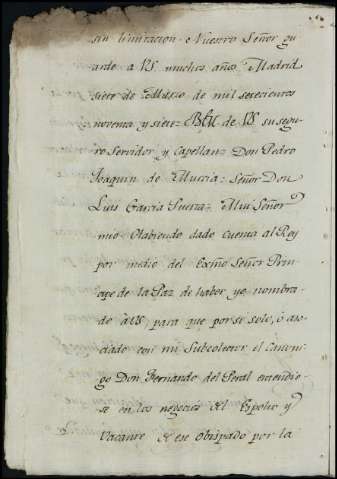 sin limitacion. Nuestro Señor gu
arde a VS muchos años. Madrid
siete de Marzo de mil setecientos
noventa y siete= BLM de VS su segu
ro Servidor y Capellan= Don Pedro
Joaquin de Murcia= Señor Don
Luis Garcia Mui Señor
mio Habiendo dado cuenta al Rey
por medio del Exmo Señor Prin
cipe de la Paz de haber yo nombra
do à VS para que por sí solo, ò aso
ciado con mi Subcolector el Canoni
go Don Fernando del Peral entendie
se en los negocios del Espolio y
Vacante de ese Obispado por la